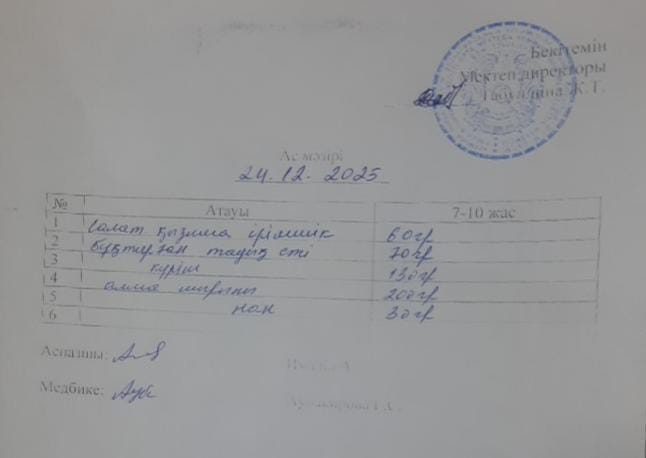 Бекітемін
Мектеп директоры
Ж.Т.
Ас мәзірі
24.12.2025
№ Атауы 7-10 жас
1 Салат қызылша ірімшік 60гр
2 бұқтырған тауық еті 70гр
3 күріш 130гр
4 алма шырыны 200гр
5 нан 30гр
6
Аспазшы:
Медбике: